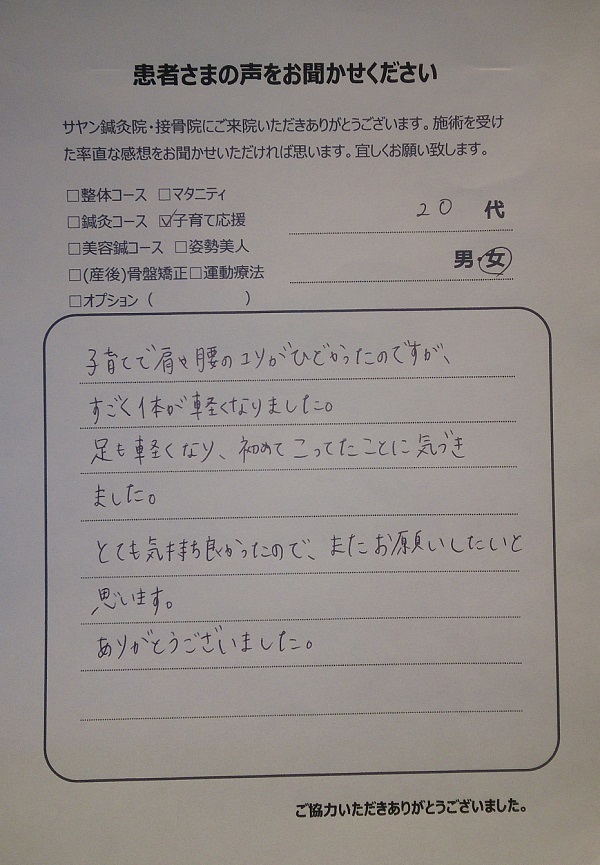 患者さまの声をお聞かせください
サヤン鍼灸院・接骨院にご来院いただきありがとうございます。施術を受け
た率直な感想をお聞かせいただければ思います。宜しくお願い致します。
□整体コース □マタニティ
□鍼灸コース ☑子育て応援
20 代
□美容鍼コース □姿勢美人
男・女
□(産後)骨盤矯正□運動療法
□オプション ( )
子育てで肩や腰のコリがひどかったのですが、
すごく体が軽くなりました。
足も軽くなり、初めてこってたことに気づき
ました。
とても気持ち良かったので、またお願いしたいと
思います。
ありがとうございました。
ご協力いただきありがとうございました。